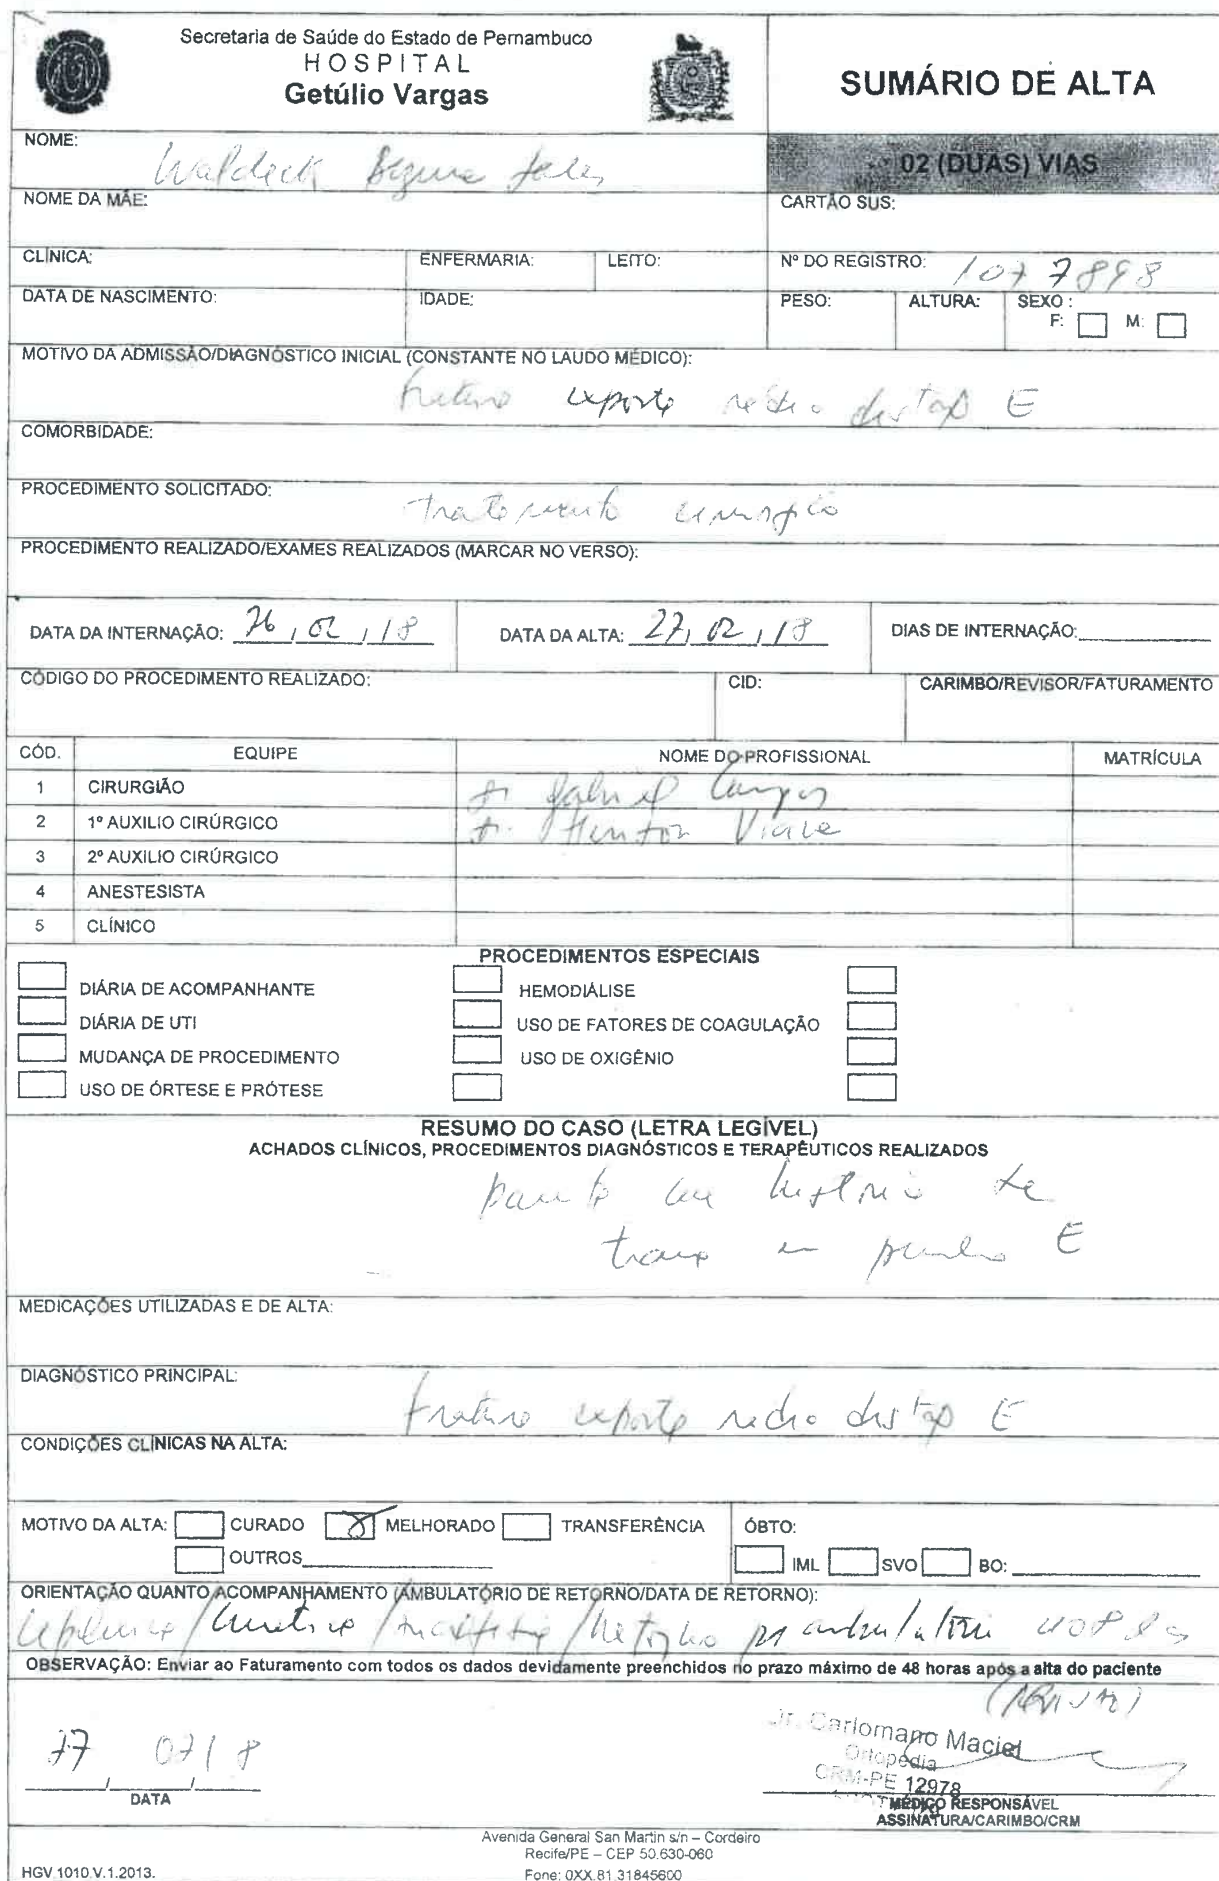 Secretaria de Saúde do Estado de Pernambuco
HOSPITAL
Getúlio Vargas
SUMÁRIO DE ALTA
02 (DUAS) VIAS
NOME:
Waldeck
NOME DA MÃE:
CARTÃO SUS:
CLÍNICA:
ENFERMARIA:
LEITO:
Nº DO REGISTRO: 1077898
DATA DE NASCIMENTO:
IDADE:
PESO:
ALTURA:
SEXO:
F: M:
MOTIVO DA ADMISSÃO/DIAGNÓSTICO INICIAL (CONSTANTE NO LAUDO MÉDICO):
fratura exposta rádio distal E
COMORBIDADE:
PROCEDIMENTO SOLICITADO:
tratamento cirúrgico
PROCEDIMENTO REALIZADO/EXAMES REALIZADOS (MARCAR NO VERSO):
DATA DA INTERNAÇÃO: 26, 02, 18
DATA DA ALTA: 27, 02, 18
DIAS DE INTERNAÇÃO:
CÓDIGO DO PROCEDIMENTO REALIZADO:
CID:
CARIMBO/REVISOR/FATURAMENTO
CÓD. EQUIPE NOME DO PROFISSIONAL MATRÍCULA
1 CIRURGIÃO Dr Gabriel Campos
2 1º AUXILIO CIRÚRGICO Dr.
3 2º AUXILIO CIRÚRGICO
4 ANESTESISTA
5 CLÍNICO
PROCEDIMENTOS ESPECIAIS
DIÁRIA DE ACOMPANHANTE
HEMODIÁLISE
DIÁRIA DE UTI
USO DE FATORES DE COAGULAÇÃO
MUDANÇA DE PROCEDIMENTO
USO DE OXIGÊNIO
USO DE ÓRTESE E PRÓTESE
RESUMO DO CASO (LETRA LEGÍVEL)
ACHADOS CLÍNICOS, PROCEDIMENTOS DIAGNÓSTICOS E TERAPÊUTICOS REALIZADOS
história de
trauma em punho E
MEDICAÇÕES UTILIZADAS E DE ALTA:
DIAGNÓSTICO PRINCIPAL:
fratura exposta rádio distal E
CONDIÇÕES CLÍNICAS NA ALTA:
MOTIVO DA ALTA: CURADO X MELHORADO TRANSFERÊNCIA
ÓBTO:
OUTROS
IML SVO BO:
ORIENTAÇÃO QUANTO ACOMPANHAMENTO (AMBULATÓRIO DE RETORNO/DATA DE RETORNO):
/ / / Retorno ambulatório
OBSERVAÇÃO: Enviar ao Faturamento com todos os dados devidamente preenchidos no prazo máximo de 48 horas após a alta do paciente
27 02 18
DATA
Dr. Carlomano Maciel
Ortopedia
CRM-PE 12978
MÉDICO RESPONSÁVEL
ASSINATURA/CARIMBO/CRM
Avenida General San Martin s/n – Cordeiro
Recife/PE – CEP 50.630-060
HGV.1010.V.1.2013.
Fone: 0XX.81.31845600